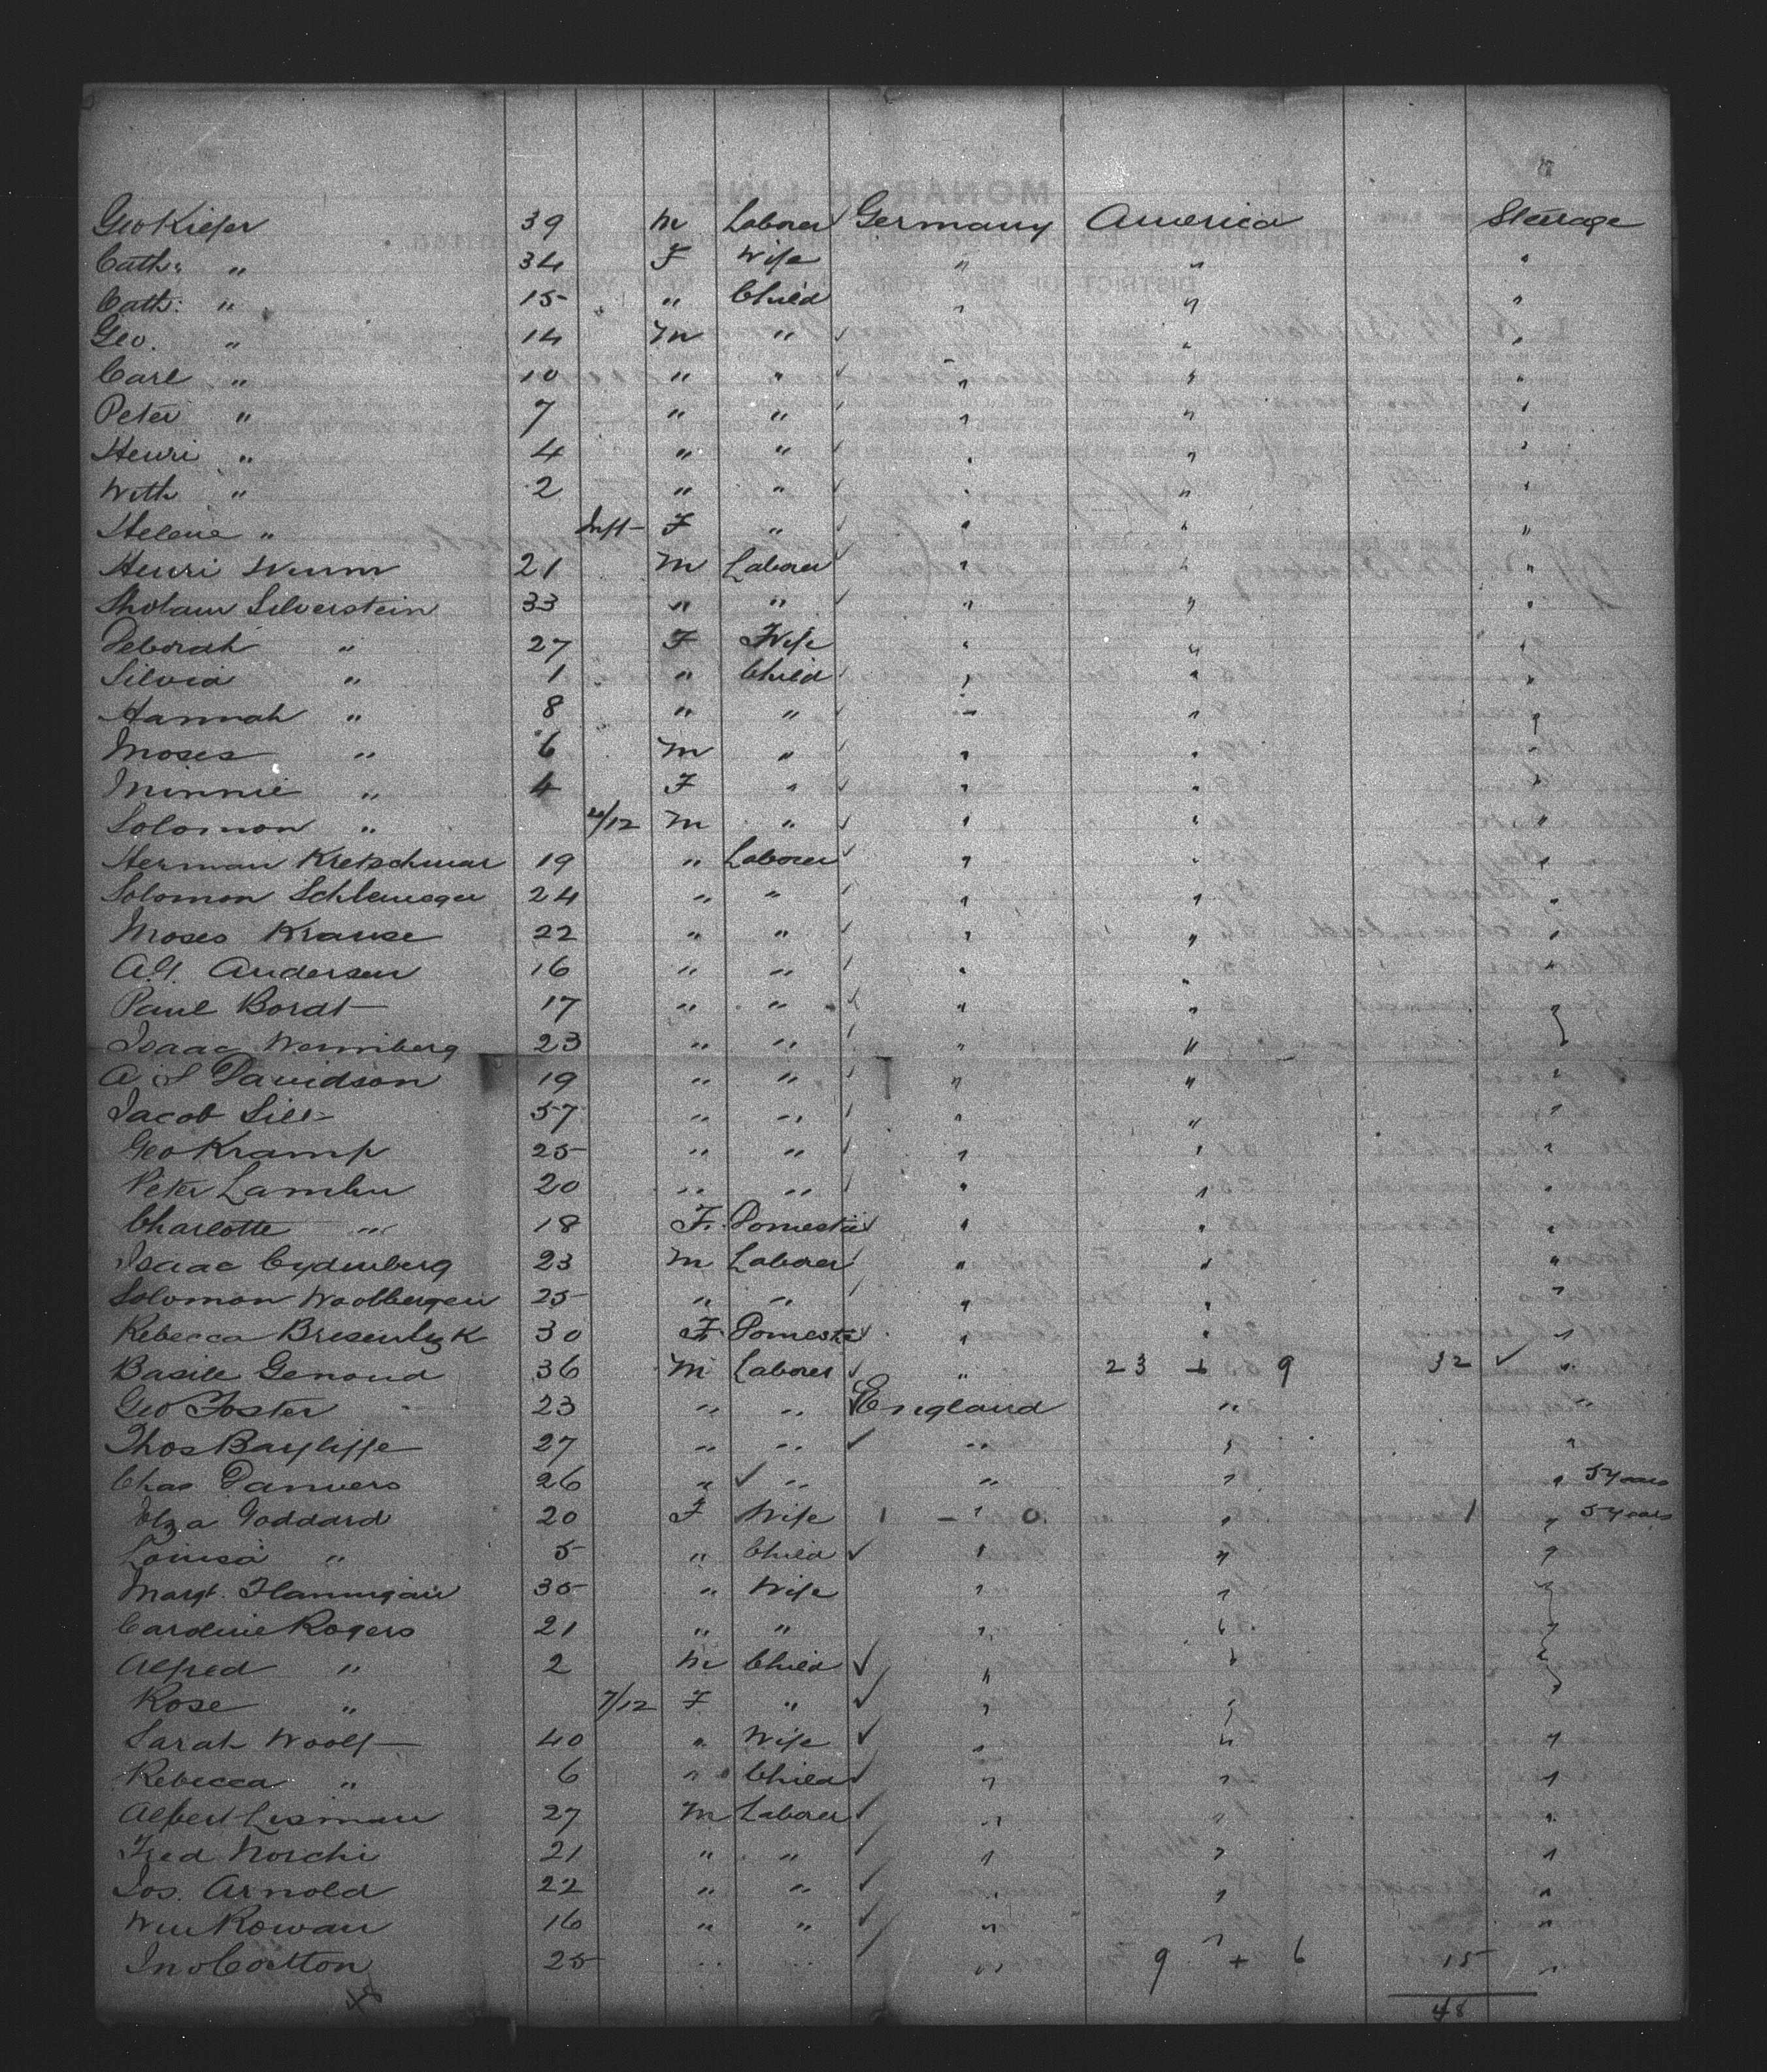 Geo Kiefer 39 M Laborer Germany America Steerage
Cath: " 34 F Wife " " "
Cath: " 15 " Child " " "
Geo. " 14 M " " " "
Carl " 10 " " " " "
Peter " 7 " " " " "
Henri " 4 " " " " "
" 2 " " " " "
Helene " Inft F " " " "
Henri 21 M Laborer " " "
Silverstein 33 " " " " "
Deborah " 27 F Wife " " "
Silvia " 1 " Child " " "
Hannah " 8 " " " " "
Moses " 6 M " " " "
Minnie " 4 F " " " "
Solomon " 4/12 M " " " "
Herman Kretschmar 19 " Laborer " " "
Solomon 24 " " " " "
Moses Krause 22 " " " " "
Andersen 16 " " " " "
Paul Bordt 17 " " " " "
Isaac 23 " " " " "
A S Davidson 19 " " " " "
Jacob 57 " " " " "
Geo Kramp 25 " " " " "
Peter 20 " " " " "
Charlotte " 18 F. Domestic " " "
Isaac Cydenberg 23 M Laborer " " "
Solomon 25 " " " " "
Rebecca 30 F. Domestic " " "
Basile Genoud 36 M Laborer " 23 + 9 32 "
Geo Foster 23 " " England " "
Thos Bayliffe 27 " " " " "
Chas Danvers 26 " " " " " 5 years
Elza Goddard 20 F Wife 1 - " 0 " 1 " 5 years
Louisa " 5 " Child " " "
Margt. Flannigan 35 " Wife " " "
Caroline Rogers 21 " " " " "
Alfred " 2 M Child " " "
Rose " 7/12 F " " " "
Sarah Woolf 40 " Wife " " "
Rebecca " 6 " Child " " "
Albert Lisman 27 M Laborer " " "
Fred Norchi 21 " " " " "
Jos. Arnold 22 " " " " "
Wm Rowan 16 " " " " "
Jno Cotton 25 " " " 9 " + 6 15 "
48